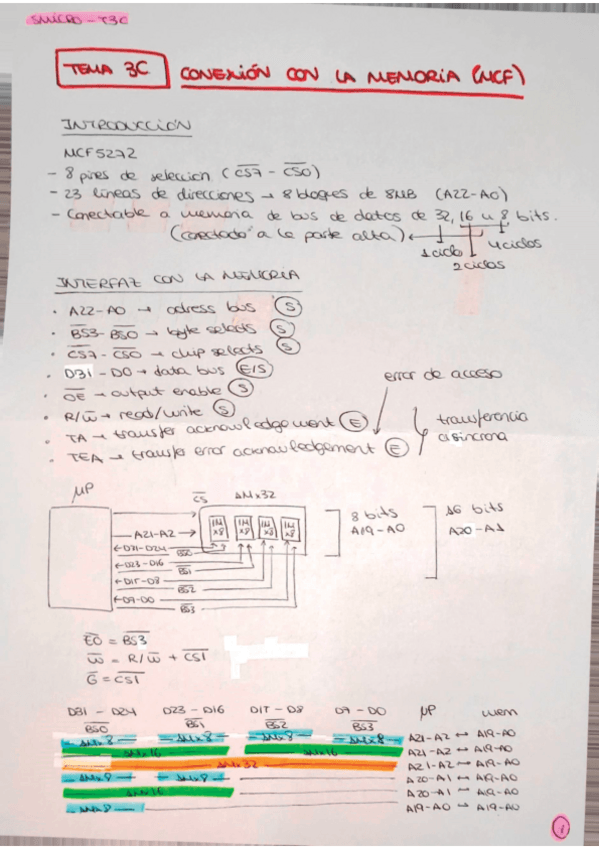 SMICRO - T3C
TEMA 3C CONEXIÓN CON LA MEMORIA (MCF)
INTRODUCCIÓN
MCF5272
- 8 pines de seleccion (CS7 - CS0)
- 23 líneas de direcciones → 8 bloques de 8MB (A22-A0)
- Conectable a memoria de bus de datos de 32, 16 u 8 bits.
(conectado a la parte alta)
1 ciclo
4 ciclos
2 ciclos
INTERFAZ CON LA MEMORIA
· A22-A0 → adress bus (S)
· BS3-BS0 → byte selects (S)
· CS7 - CS0 → chip selects (S)
· D31 - D0 → data bus (E/S)
· OE → output enable (S)
· R/W → read/write (S)
· TA → transfer acknowledgement (E)
· TEA → transfer error acknowledgement (E)
error de acceso
transferencia
asíncrona
μP
CS
1M x 8 1M x 8 1M x 8 1M x 8
A21-A2
D23-D16
BS1
BS2
D7-D0
BS3
8 bits
A19-A0
16 bits
A20-A1
EO = BS3
W = R/W + CS1
G = CS1
D31 - D24 D23 - D16 D7 - D0 μP mem
BS0 BS1 BS2 BS3
A21-A2 ↔ A19-A0
A21-A2 ↔ A19-A0
A21-A2 ↔ A19-A0
A20-A1 ↔ A19-A0
A20-A1 A19-A0
A19-A0 A19-A0
1